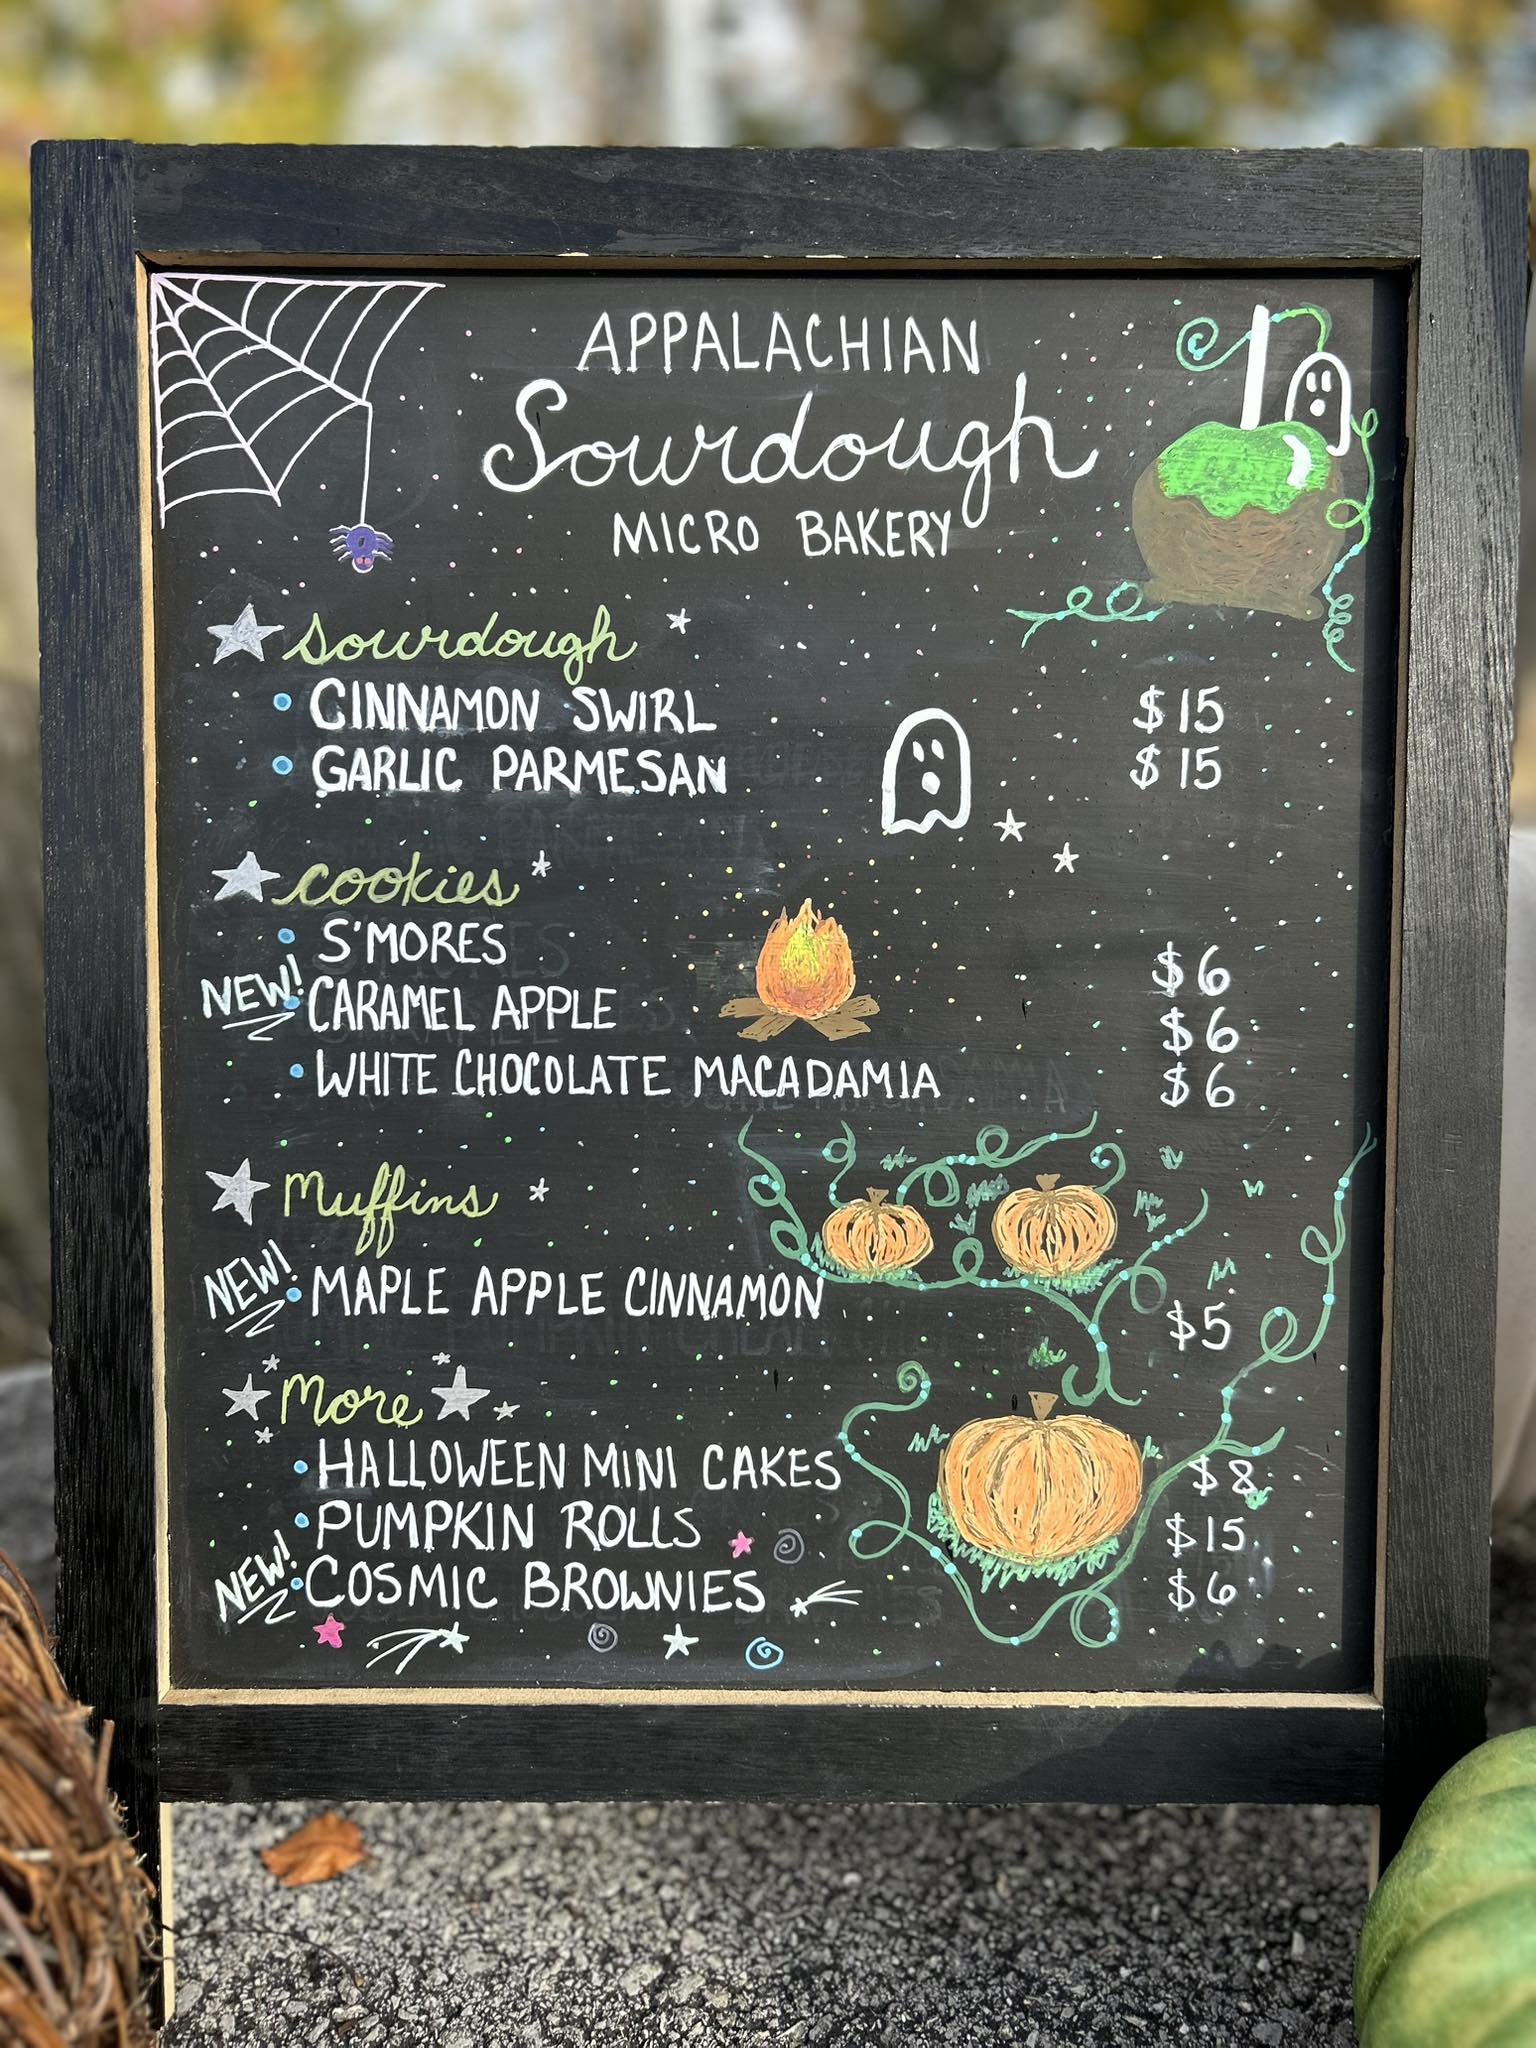 APPALACHIAN
Sourdough
MICRO BAKERY
sourdough
CINNAMON SWIRL $15
GARLIC PARMESAN $15
cookies
S'MORES $6
NEW! CARAMEL APPLE $6
WHITE CHOCOLATE MACADAMIA $6
Muffins
NEW! MAPLE APPLE CINNAMON $5
More
HALLOWEEN MINI CAKES $8
PUMPKIN ROLLS $15
NEW! COSMIC BROWNIES $6